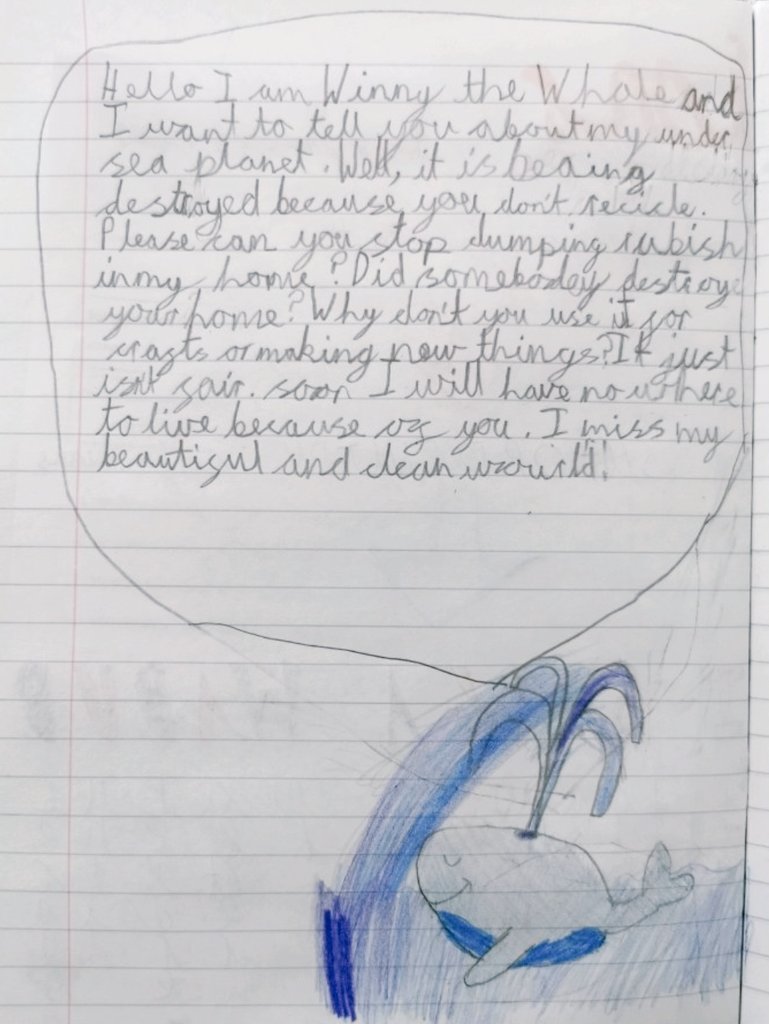 Hello I am Winny the Whale and
I want to tell you about my under
sea planet. Well, it is beaing
destroyed because you don't recicle.
Please can you stop dumping rubish
in my home? Did somebodey destroye
your home? Why don't you use it for
crafts or making new things? It just
isn't fair. soon I will have no where
to live because of you. I miss my
beautiful and clean wourld.